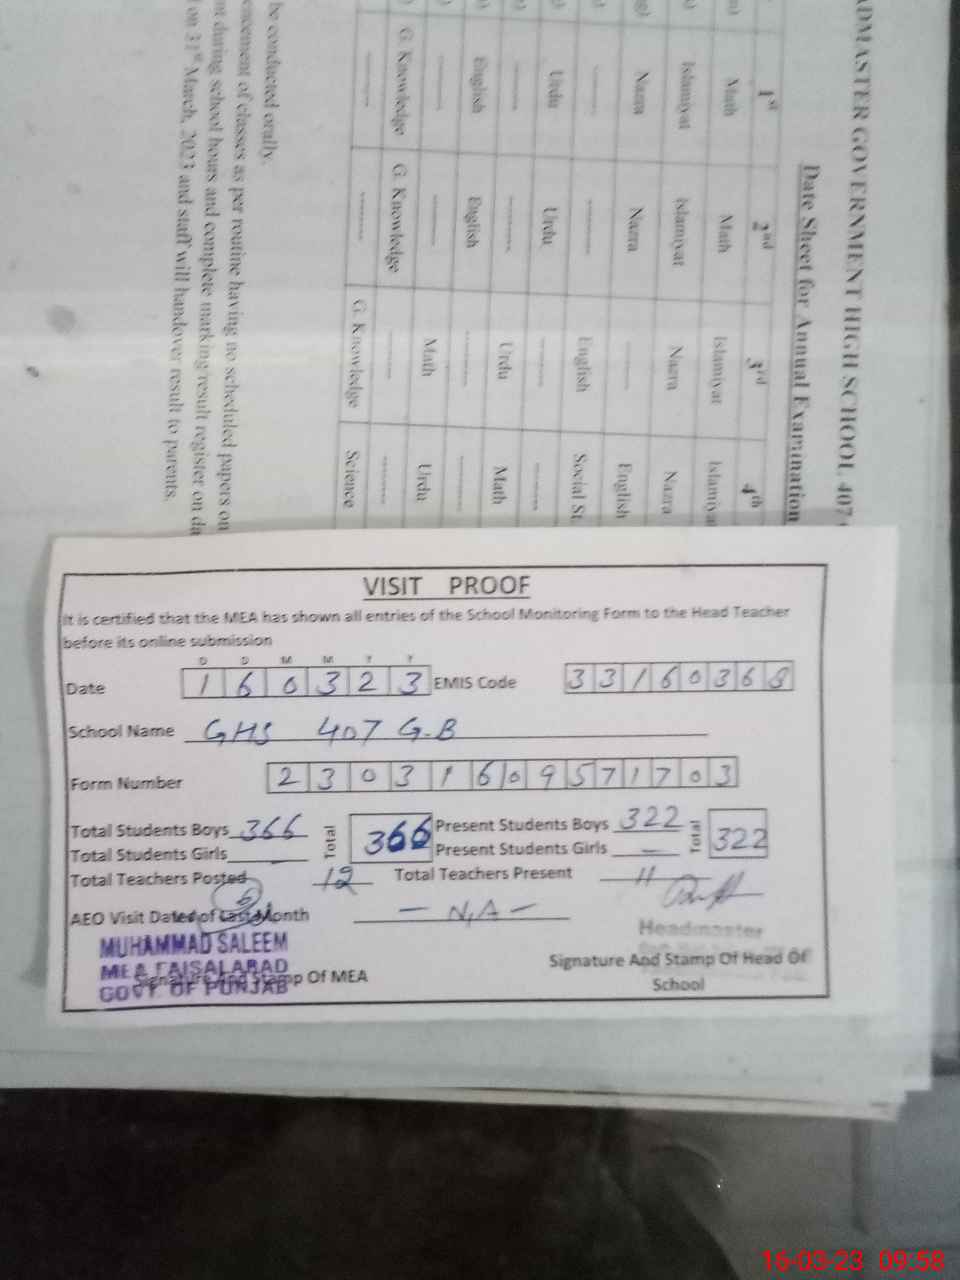 ADMASTER GOVERNMENT HIGH SCHOOL 407
Date Sheet for Annual Examination
1st 2nd 3rd 4th
Math Math Islamiyat Islamiyat
Islamiyat Islamiyat Nazra Nazra
Nazra Nazra -------- English
-------- -------- English Social St
Urdu Urdu -------- --------
-------- -------- Urdu Math
English English -------- --------
-------- -------- Math Urdu
G. Knowledge G. Knowledge -------- --------
-------- -------- G. Knowledge Science
be conducted orally.
encement of classes as per routine having no scheduled papers on
nt during school hours and complete marking/result register on da
on 31st March, 2023 and staff will handover result to parents.
VISIT PROOF
It is certified that the MEA has shown all entries of the School Monitoring Form to the Head Teacher
before its online submission
D D M M Y Y
Date 160323 EMIS Code 33160368
School Name GHS 407 G.B
Form Number 23031609571703
Total Students Boys 366 Total 366 Present Students Boys 322 Total 322
Total Students Girls — Present Students Girls —
Total Teachers Posted 12 Total Teachers Present 11
AEO Visit Dated of Last Month — N,A —
MUHAMMAD SALEEM
MEA FAISALABAD
GOVT. OF PUNJAB
Signature And Stamp Of MEA
Headmaster
Signature And Stamp Of Head Of
School
16-03-23 09:58